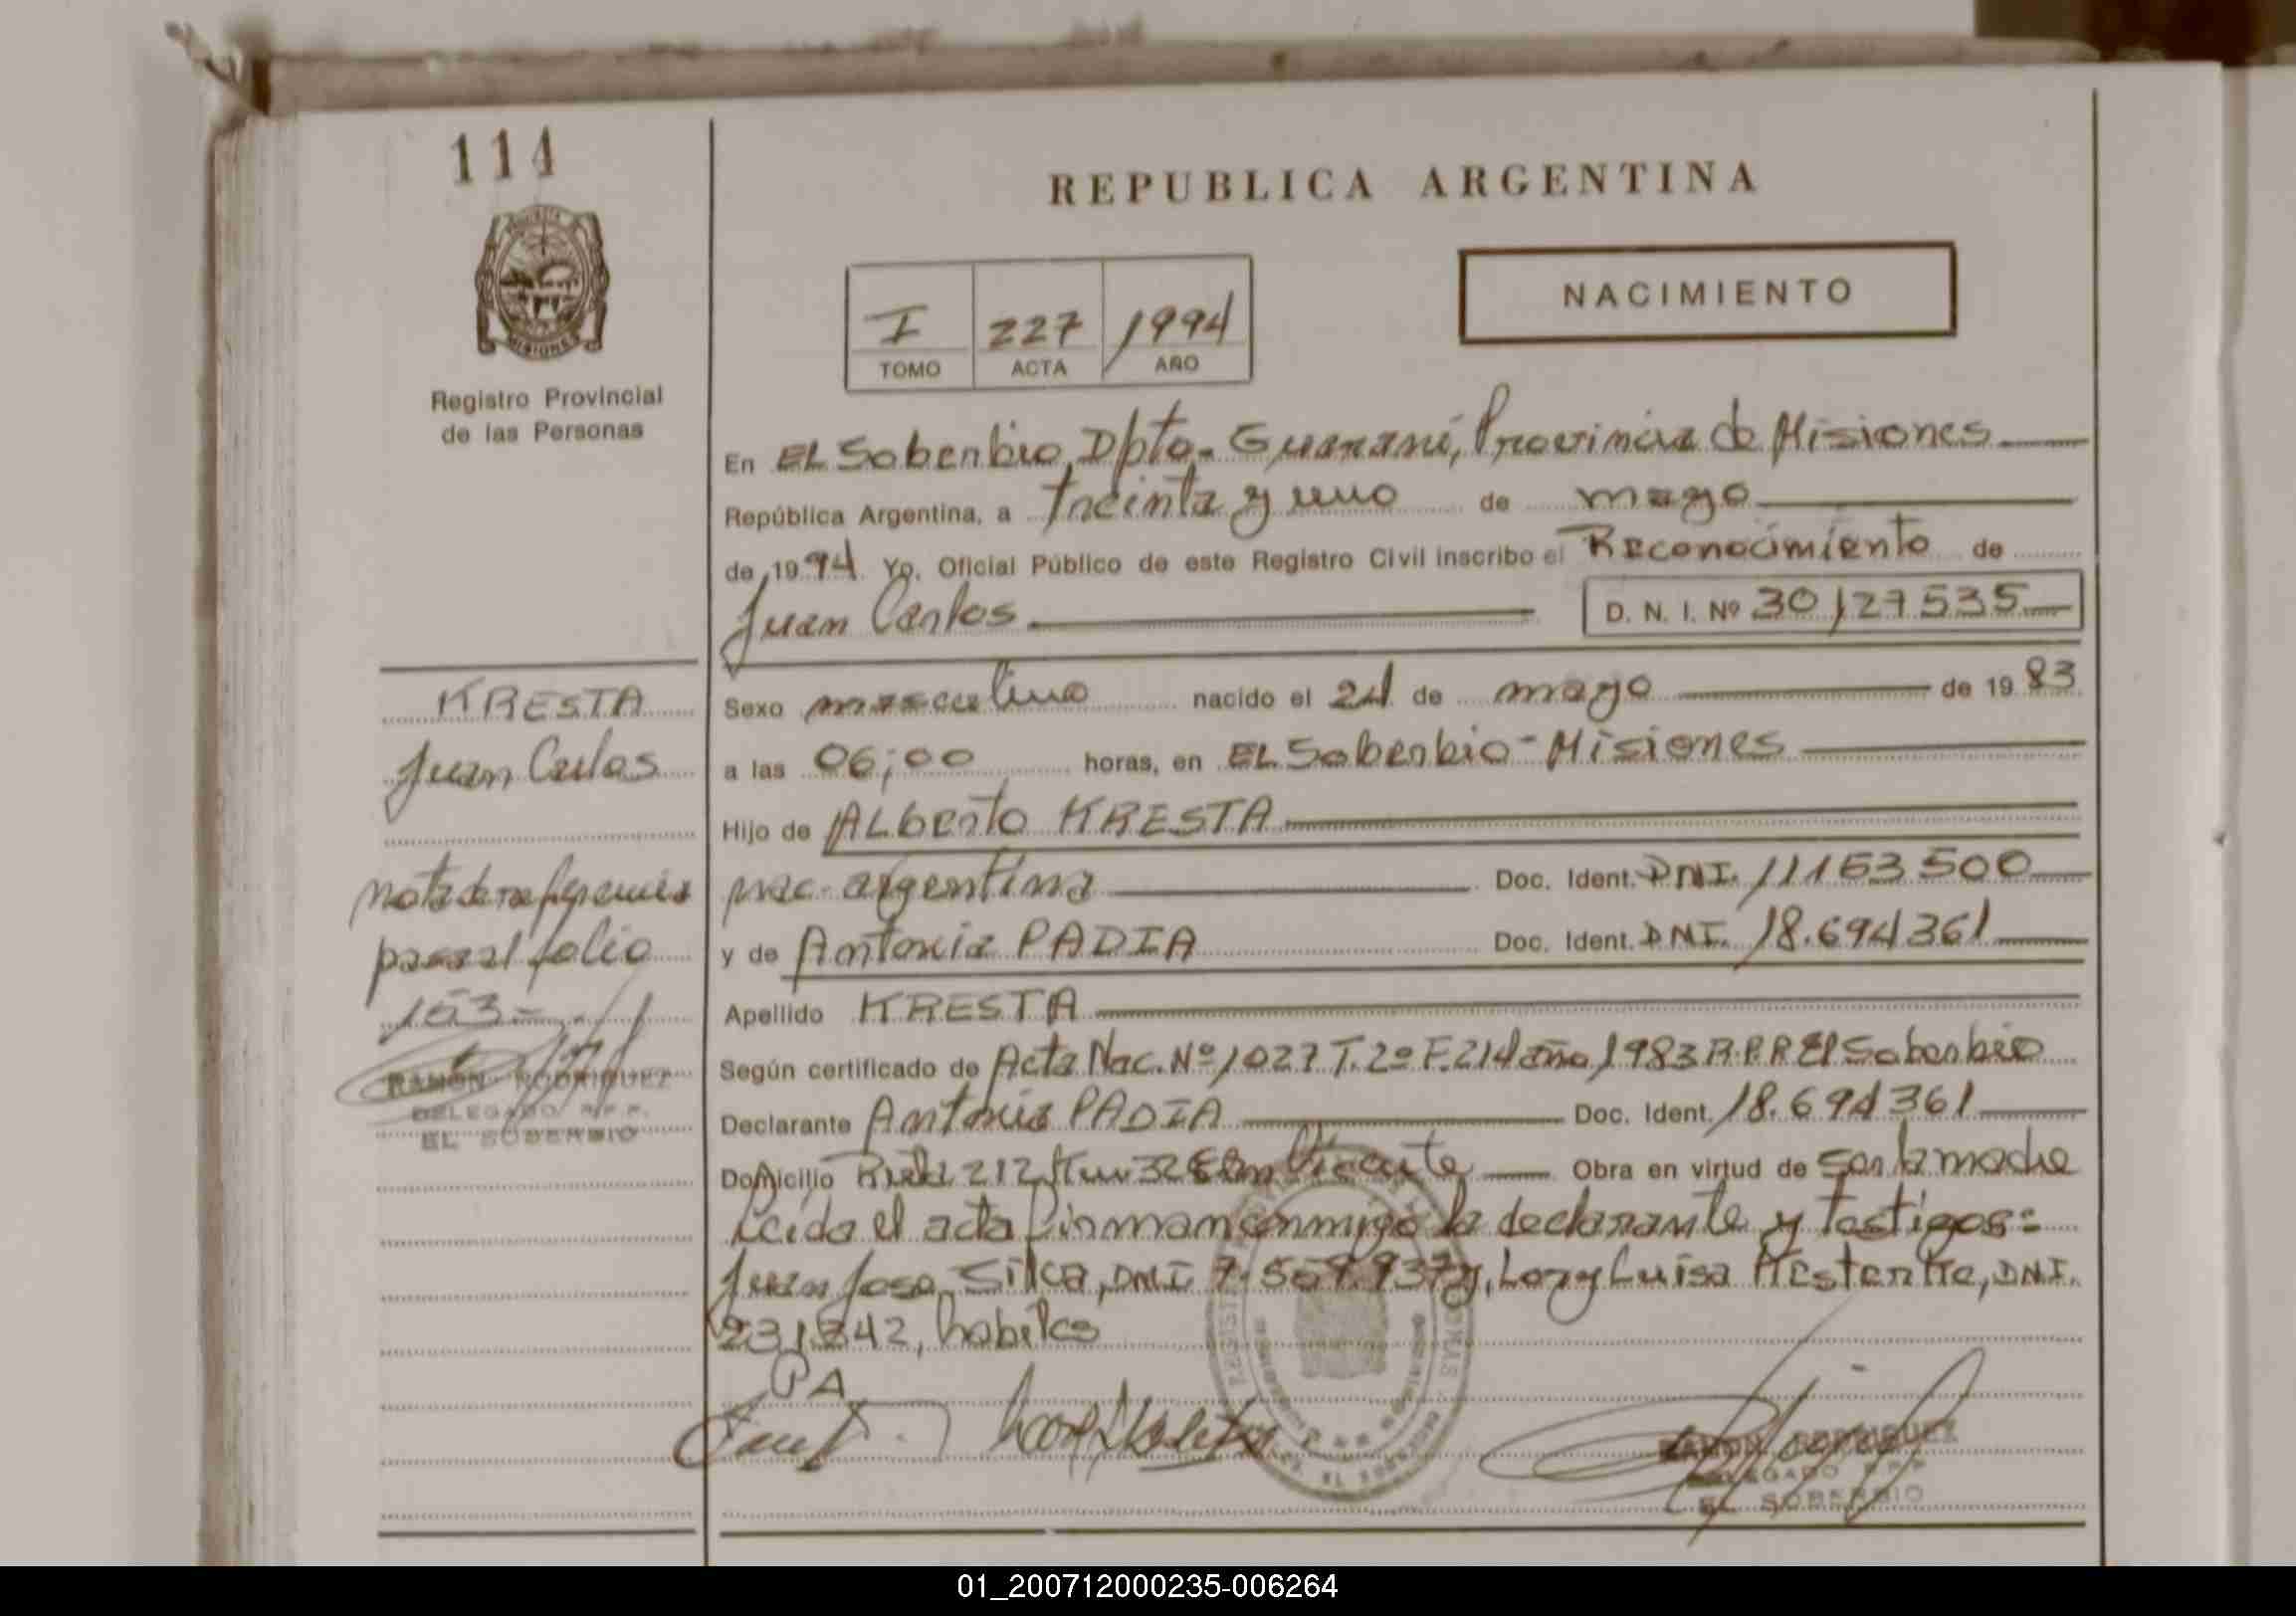 114
REPUBLICA ARGENTINA
NACIMIENTO
I 227 1994
TOMO ACTA AÑO
MISIONES
Registro Provincial
de las Personas
En EL Soberbio, Dpto. Guaraní, Provincia de Misiones
República Argentina, a treinta y uno de mayo
de 1994 Yo, Oficial Público de este Registro Civil inscribo el Reconocimiento de
Juan Carlos D. N. I. Nº 30127535
KRESTA
Juan Carlos
nota de referencia
pasa al folio
153
RAMON RODRIGUEZ
DELEGADO R.P.P.
EL SOBERBIO
Sexo masculino nacido el 24 de mayo de 1983
a las 06;00 horas, en EL Soberbio - Misiones
Hijo de Alberto KRESTA
nac. argentina Doc. Ident. DNI. 11163500
y de Antonia PADIA Doc. Ident. DNI. 18.694361
Apellido KRESTA
Según certificado de Acta Nac. Nº 1027 T. 2º F. 214 año 1983 R.P.P. El Soberbio
Declarante Antonia PADIA Doc. Ident. 18.694361
Domicilio Ruta 212 Km 328 San Vicente Obra en virtud de ser la madre
Leída el acta firman conmigo la declarante y testigos:
Juan Jose Silva, DNI 7.509.937 y, Lory Luisa DNI.
231342, habiles
PA
RAMON RODRIGUEZ
DELEGADO R.P.P.
EL SOBERBIO
01_200712000235-006264